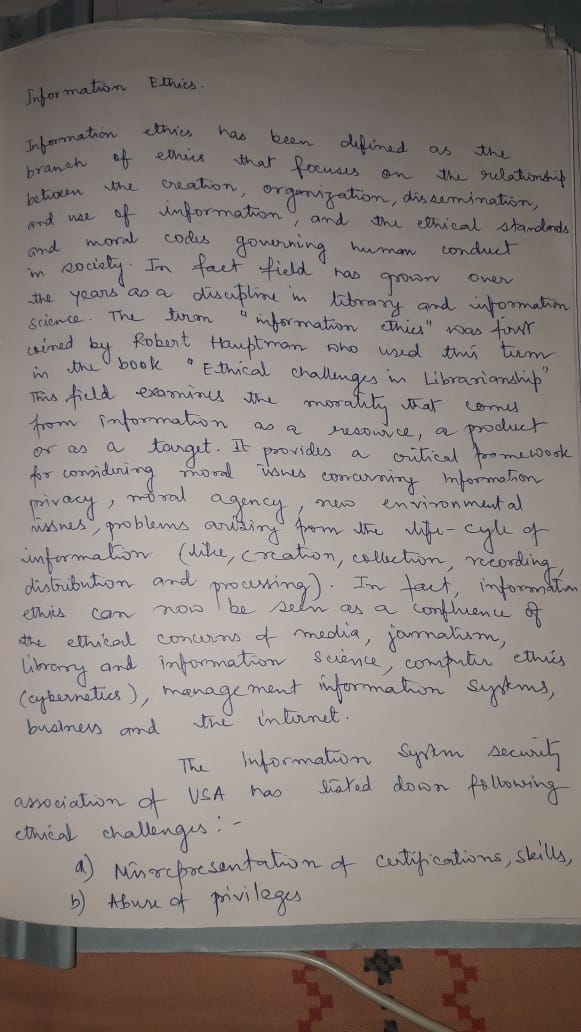 Information Ethics.
Information ethics has been defined as the
branch of ethics that focuses on the relationship
between the creation, organization, dissemination,
and use of information, and the ethical standards
and moral codes governing human conduct
in society. In fact field has grown over
the years as a discipline in library and information
science. The term "information ethics" was first
coined by Robert Hauptman who used this term
in the book "Ethical challenges in Librarianship"
This field examines the morality that comes
from information as a resource, a product
or as a target. It provides a critical framework
for considering moral issues concerning Information
privacy, moral agency, new environmental
issues, problems arising from the life-cycle of
information (like, creation, collection, recording,
distribution and processing). In fact, information
ethics can now be seen as a confluence of
the ethical concerns of media, jarnalism,
library and information science, computer ethics
(cybernetics), management information systems,
business and the internet.
The Information System security
association of USA has listed down following
ethical challenges :-
a) Misrepresentation of certifications, skills,
b) Abuse of privileges